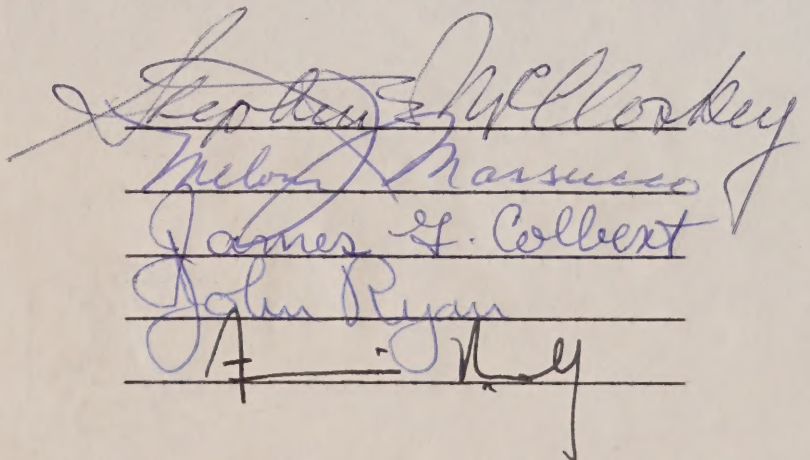 Stephen E McCloskey
Melvin Massucco
James G. Colbert
John Ryan